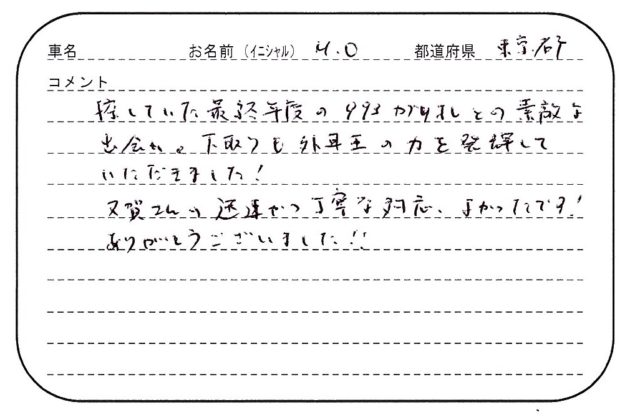 車名 お名前（イニシャル） H.O 都道府県 東京都
コメント
探していた最終年度の993カレラとの素敵な
出会い。下取りも外車王の力を発揮して
いただきました！
又賀さんの迅速かつ丁寧な対応、よかったです！
ありがとうございました!!